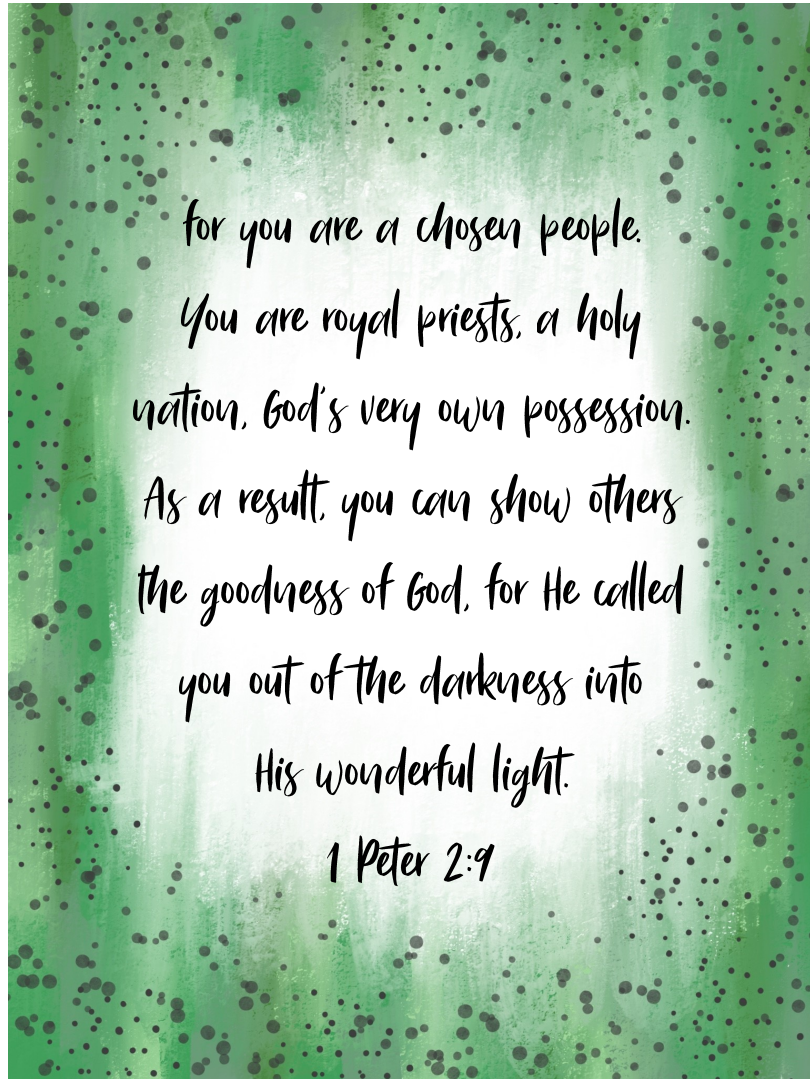 for you are a chosen people.
You are royal priests, a holy
nation, God's very own possession.
As a result, you can show others
the goodness of God, for He called
you out of the darkness into
His wonderful light.
1 Peter 2:9